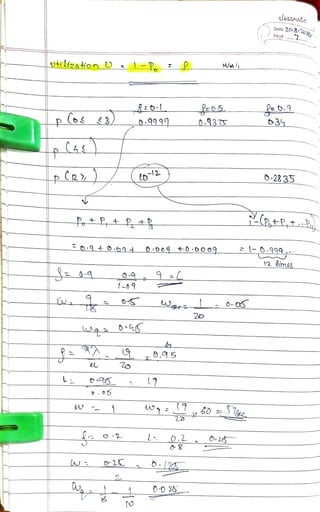 classmate
Date
Page 7
Utilization U = 1 - P₀ = ρ M/M/1
ρ=0.1 ρ=0.5 ρ=0.9
p(0≤ ≤3) 0.9999 0.9375 0.34
p(4≤
p(12≥) 10⁻¹² 0.2835
P₀ + P₁ + P₂ + P₃ 1-(P₀+P₁+...P₁₁)
= 0.9 + 0.09 + 0.009 + 0.0009 = 1-0.999...
12 times
ρ = 0.9 = 9 = L
w = 9/18 = 0.5 = 1/20 = 0.05
Wq = 0.45
ρ = λ/u = 19/20 = 0.95
L = 0.95/0.05 = 19
w = 1 Wq = 19/20 × 60 = 57
ρ = 0.2 L = 0.2/0.8 = 0.25
w = 0.25/2 = 0.125
Wq = 1/8 - 1/10 0.025